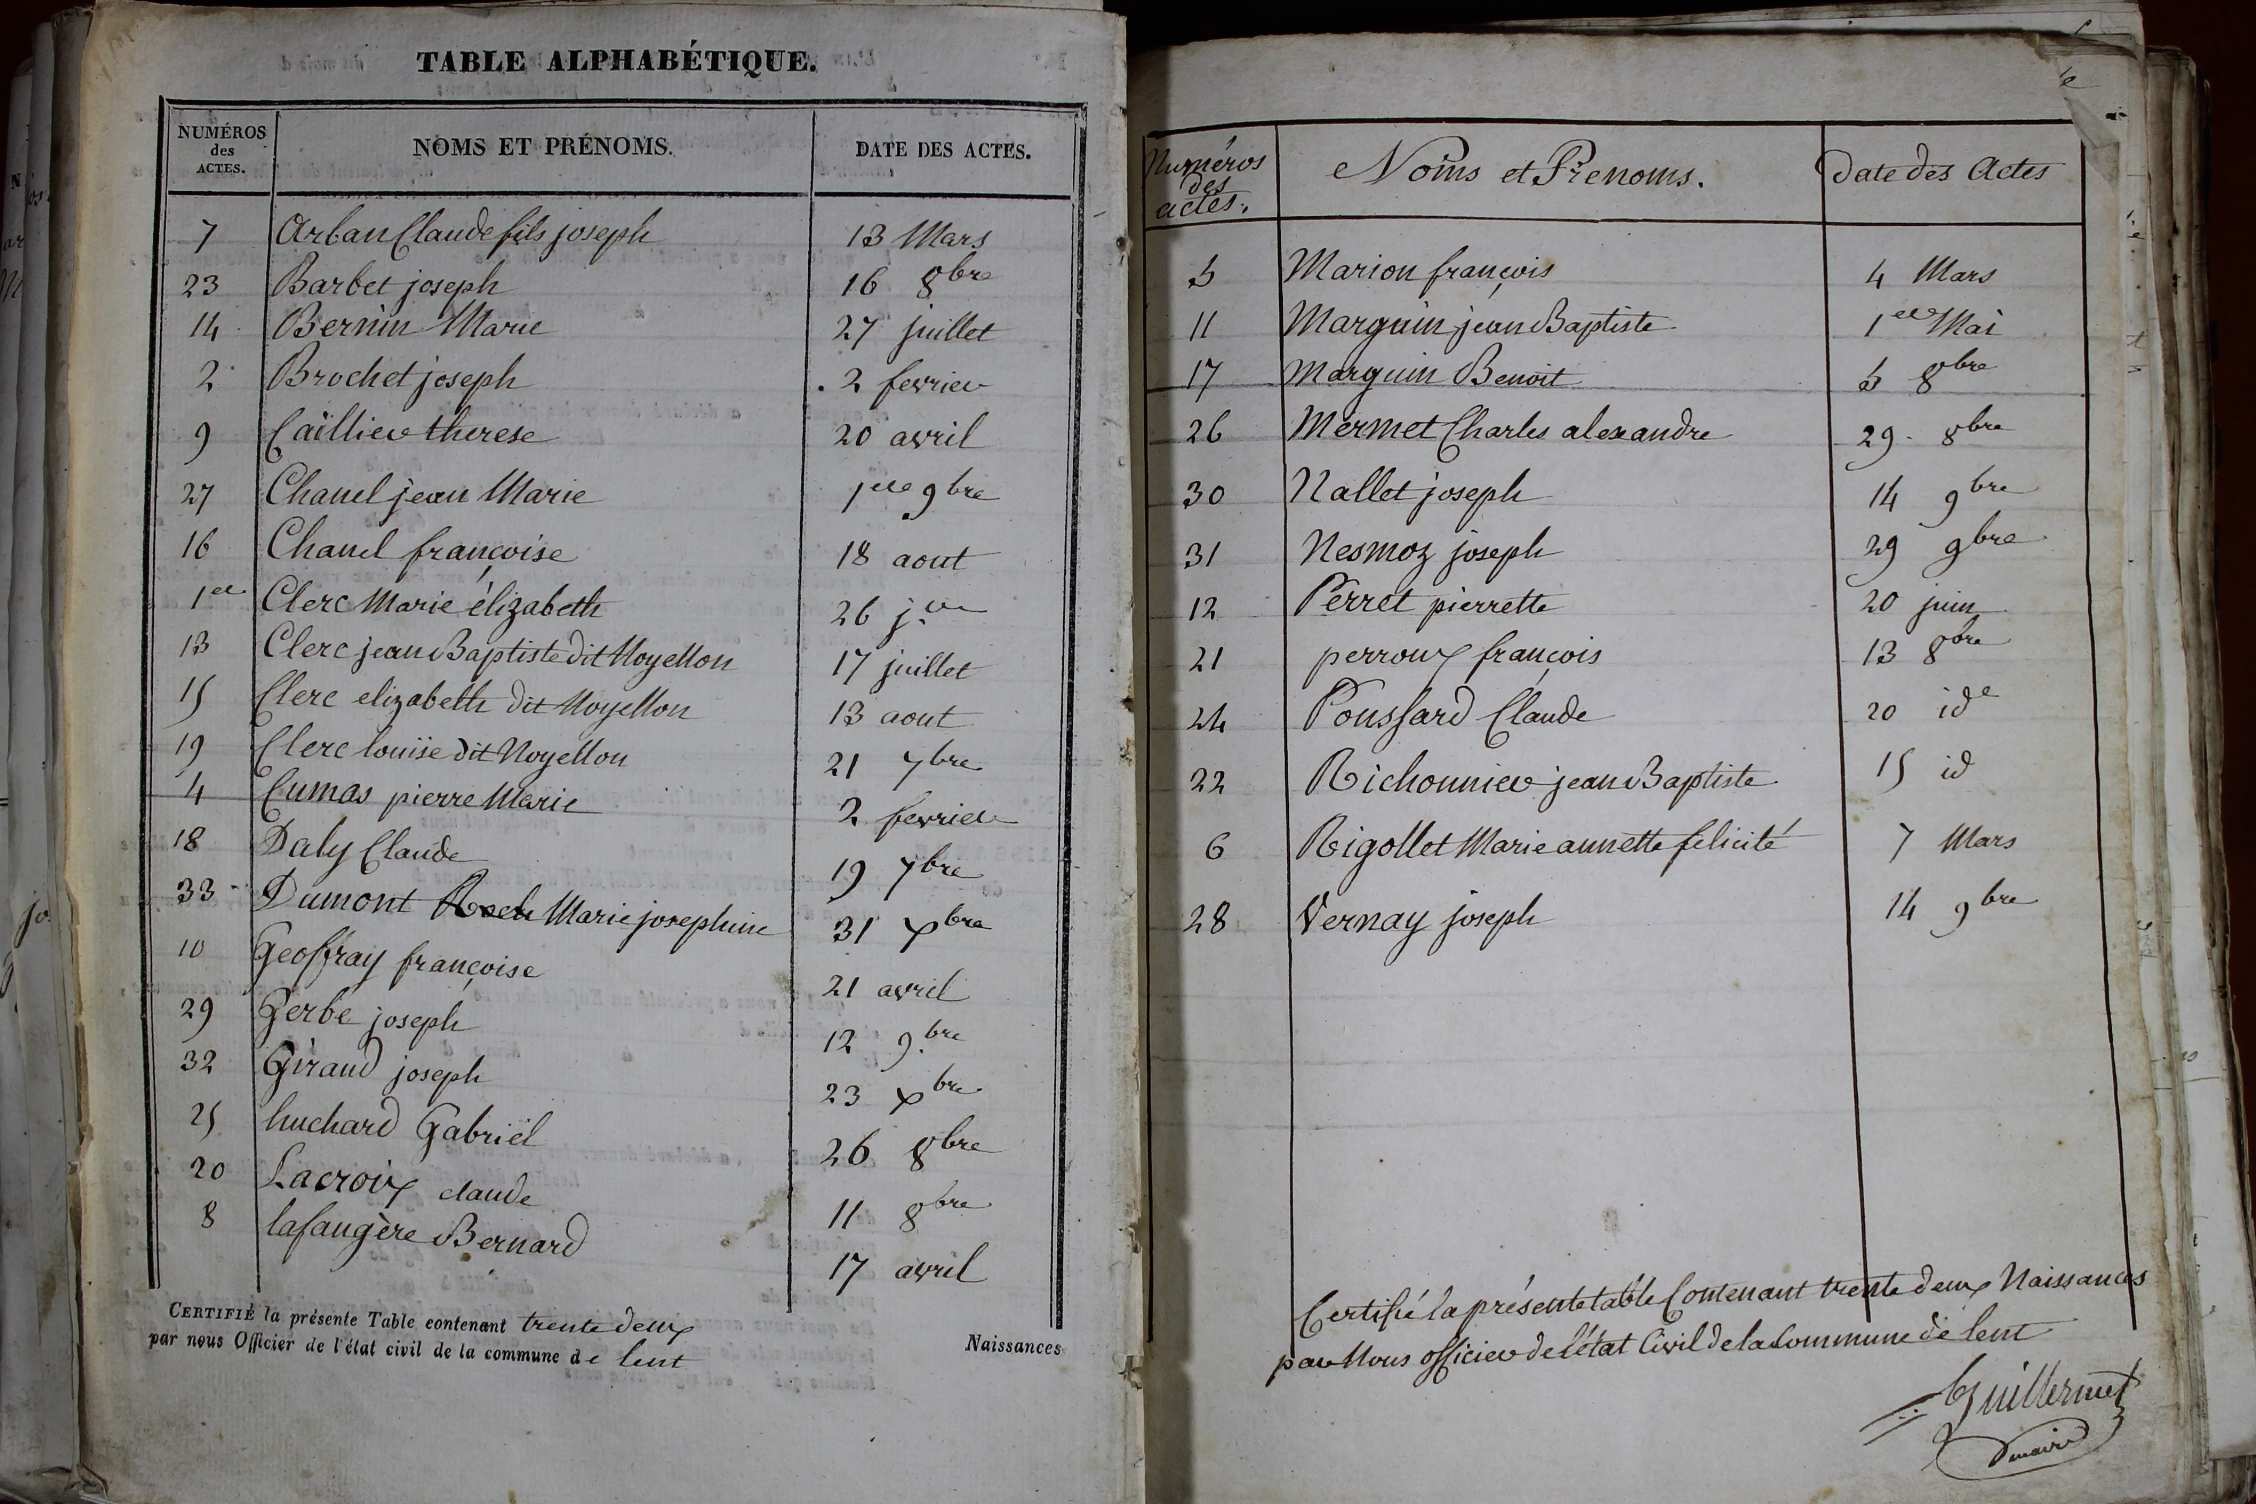 TABLE ALPHABÉTIQUE.
NUMÉROS des ACTES. NOMS ET PRÉNOMS. DATE DES ACTES.
7 Arban Claude fils joseph 13 Mars
23 Barbet joseph 16 8bre
14 Bernin Marie 27 juillet
2 Brochet joseph 2 fevrier
9 Caillier therese 20 avril
27 Chanel jean Marie 1er 9bre
16 Chanel françoise 18 aout
1er Clerc Marie élizabeth 26 j.er
13 Clerc jean Baptiste dit Noyellon 17 juillet
15 Clerc elizabeth dit Noyellon 13 aout
19 Clerc louise dit Noyellon 21 7bre
4 Cumas pierre Marie 2 fevrier
18 Daly Claude 19 7bre
33 Dumont Marie josephine 31 Xbre
10 Geoffray françoise 21 avril
29 Gerbe joseph 12 9.bre
32 Giraud joseph 23 Xbre
25 huchard Gabriël 26 8bre
20 Lacroix claude 11 8bre
8 lafangère Bernard 17 avril
CERTIFIÉ la présente Table contenant trente deux Naissances
par nous Officier de l'état civil de la commune de lent
Numéros des actes. Noms et Prenoms. Date des Actes
5 Marion françois 4 Mars
11 Marguin jean Baptiste 1er Mai
17 Marguin Benoit 5 8bre
26 Mermet Charles alexandre 29 8bre
30 Nallet joseph 14 9bre
31 Nesmoz joseph 29 9bre
12 Perret pierrette 20 juin
21 perroux françois 13 8bre
24 Poussard Claude 20 ide
22 Richonnier jean Baptiste 15 id
6 Rigollet Marie annette felicité 7 Mars
28 Vernay joseph 14 9bre
Certifié la présente table Contenant trente deux Naissances
par Nous officier de l'état Civil de la Commune de lent
Guillermet
maire